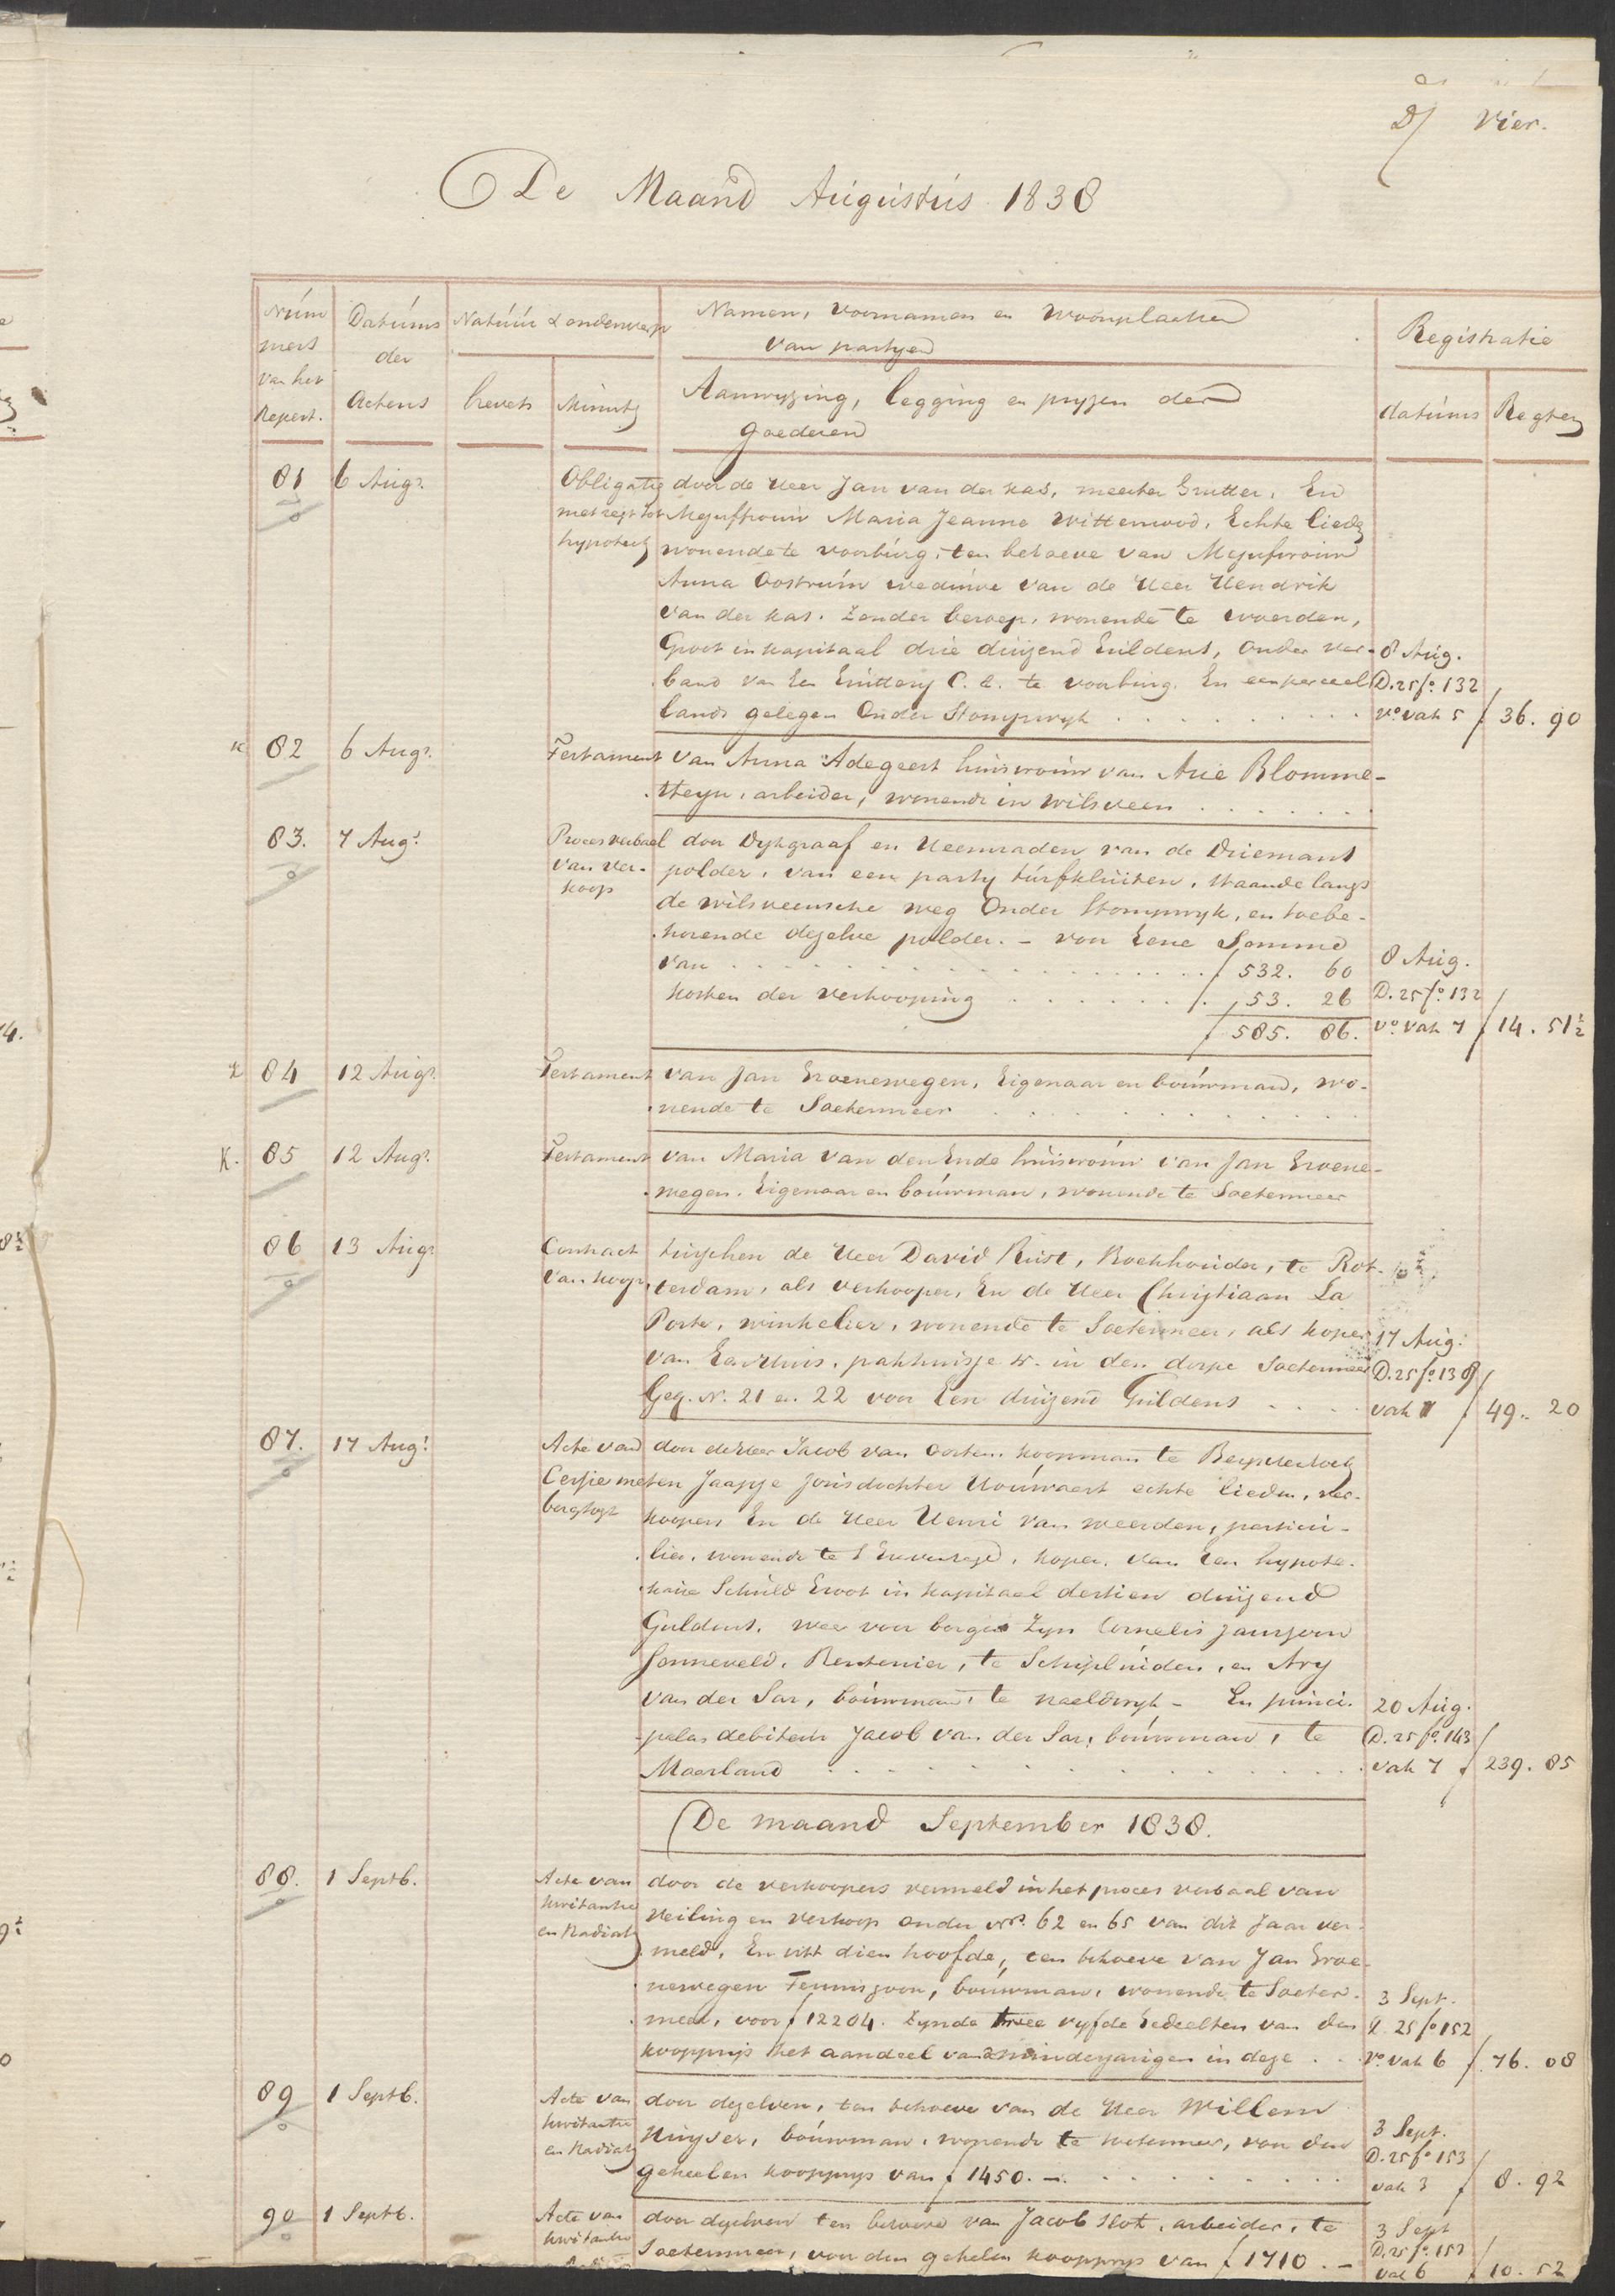 D/ Vier.
De Maand Augustus 1838
Nummers van het Repert.
Datums der Actens
Natuur & onderwerp
brevets
Minuts
Namen, voornamen en Woonplaatsen
van partyen
Aanwyzing, legging en pryzen der
goederen
Registratie
datums
Regten
81 6 Augs. Obligatie door de Heer Jan van der Kas, meester Grutter, En
met regt tot Mejuffrouw Maria Jeanne Wittenrood, Echte lieden
hypotheek wonende te voorburg, ten behoeve van Mejufvrouw
Anna Oostrum weduwe van de Heer Hendrik
van der Kas. Zonder beroep, wonende te woerden,
Groot in kapitaal drie duizend Guldens, onder ver- 8 Aug.
band van Een Gruttery C. A. te voorburg. En een perceel D. 25 fo. 132
lands gelegen Onder Stompwyk vo. vak 5 f 36. 90
K 82 6 Augs. Testament van Anna Adegeest huisvrouw van Arie Blomme-
steyn, arbeider, wonende in Wilsveen
83. 7 Augs. Proces verbaal door Dykgraaf en Heemraden van de Driemans
van ver- polder, van een party turfkluiten, staande langs
koop de wilsveensche weg Onder Stompwyk, en toebe-
horende dezelve polder. - voor Eene Somme
van f 532. 60 8 Aug.
kosten der verkooping f. 53. 26 D. 25 fo. 132
f 585. 86. vo. vak 7 f 14. 51½
L 84 12 Augs. Testament van Jan Groenewegen, Eigenaar en bouwman, wo-
nende te Soetermeer
K. 85 12 Augs. Testament van Maria van den Ende huisvrouw van Jan Groene-
wegen. Eigenaar en bouwman, wonende te Soetermeer
86 13 Augs Contract tusschen de Heer David Rust, Boekhouder, te Rot-
van koop terdam, als verkooper, En de Heer Christiaan La
Porte, winkelier, wonende te Soetermeer, als koper 17 Aug.
van Een Huis, pakhuisje &. in den dorpe Soetermeer D. 25 fo. 138
Geq. N. 21 en 22 voor Een duizend Guldens vak 1 f 49. 20
87. 17 Augs. Acte van door de Heer Jacob van Oosten koopman te
Cessie met en Jaapje Jorisdochter Houwaert echte lieden, ver-
borgtogt koopers En de Heer Henri van Weerden, particu-
lier, wonende te s Gravenhage, koper, van Een hypothe-
kaire Schuld Groot in kapitaal dertien duizend
Guldens. waer voor borgen zyn Cornelis Janszoon
Sonneveld, Rentenier, te Schipluiden, en Ary
van der Sar, bouwman, te naeldwyk - En princi- 20 Aug.
palen debiteur Jacob van der Sar, bouwman, te D. 25 fo. 143
Maasland vak 7 f 239. 85
De maand September 1838.
88. 1 Septb. Acte van door de verkoopers vermeld in het proces verbaal van
kwitantie Veiling en verkoop onder nos. 62 en 65 van dit Jaar ver-
en Radiatie meld, En uit dien hoofde, ten behoeve van Jan Groe-
newegen Teunis zoon, bouwman, wonende te Soeter- 3 Sept.
meer, voor f 12204. Zynde twee vyfde Gedeelten van den D. 25 fo 152
koopprijs het aandeel van minderjarigen in deze vo. vak 6 f. 76. 08
89 1 Septb. Acte van door dezelven, ten behoeve van de Heer Willem
kwitantie Huyser, bouwman, wonende te Soetermeer, van den 3 Sept.
en Radiatie geheelen koopprys van f 1450. - D. 25 fo 153
vak 3 f 8. 92
90 1 Septb. Acte van door dezelven ten behoeve van Jacob Slot, arbeider, te 3 Sept
kwitantie Soetermeer, van den gehelen koopprys van f 1710. - D. 25 fo. 153
vak 6 f 10. 52